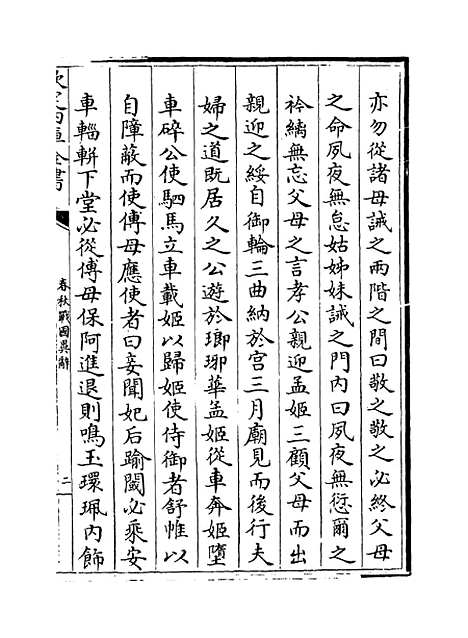 亦勿從諸母誡之兩階之間曰敬之敬之必終父母
之命夙夜無怠姑姊妹誡之門內曰夙夜無愆爾之
衿縭無忘父母之言孝公親迎孟姬三顧父母而出
親迎之綏自御輪三曲納於宮三月廟見而後行夫
婦之道既居久之公遊於瑯琊華孟姬從車奔姬墮
車碎公使駟馬立車載姬以歸姬使侍御者舒帷以
自障蔽而使傅母應使者曰妾聞妃后踰閾必乘安
車輜軿下堂必從傅母保阿進退則鳴玉環珮內飾
欽定四庫全書
春秋戰國異辭
二